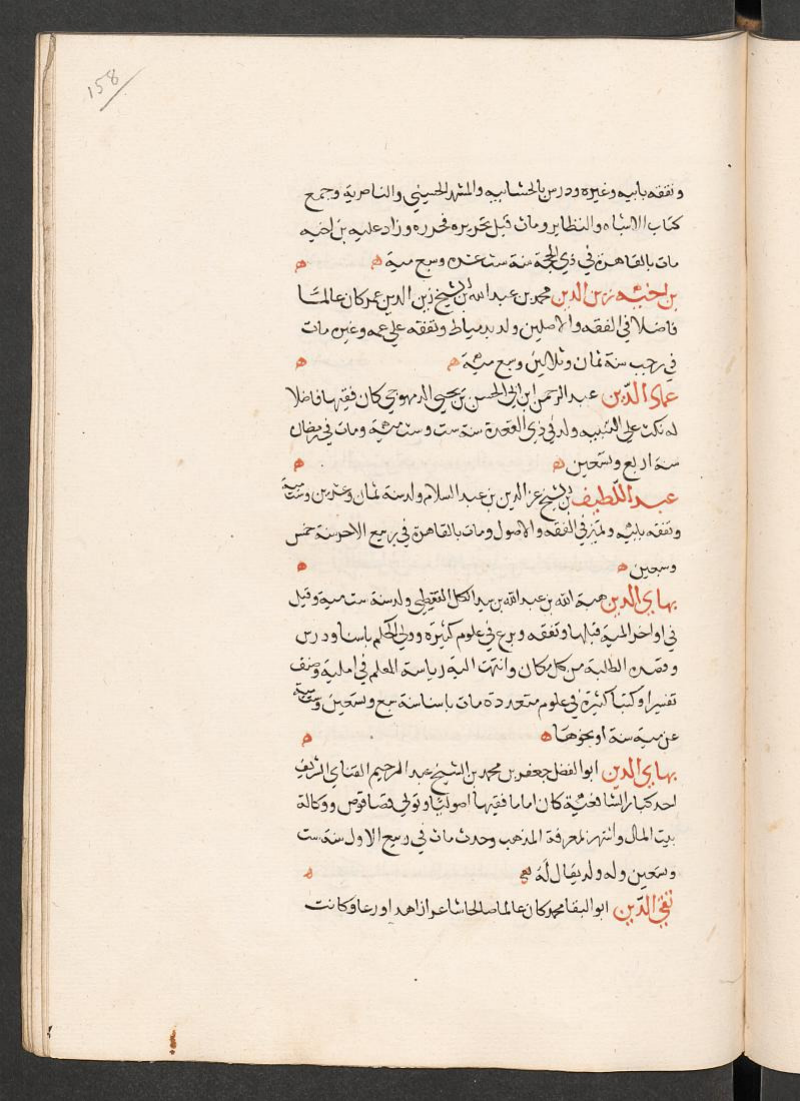 158
وتفقه بابيه وغيره ودرس بالخشابيه والمشهد الحسيني والناصرية وجمع
كتاب الاشباه والنظاير ومات قبل تحريره فحرره وزاد عليه بن اخيه
مات بالقاهرة في ذي الحجة سنة ست عشره وسبع مية ه ه
بن اخيه زين الدين محمد بن عبد الله بن الشيخ زين الدين عمر كان عالما
فاضلا في الفقه والاصلين ولد بدمياط وتفقه علي عمه وغيره مات
في رجب سنة ثمان وثلاثين وسبع مئة ه ه
عماد الدين عبد الرحمن ابن ابي الحسن بن يحيي الدمهوجي كان فقيها فاضلا
له نكت علي التنبيه ولد في ذي القعدة سنة ست وست مئة ومات في رمضان
سنة اربع وتسعين ه ه
عبد اللطيف بن الشيخ عز الدين بن عبد السلام ولد سنة ثمان وعشرين وست مية
وتفقه بابيه وتميز في الفقه والاصول ومات بالقاهرة في ربيع الاخر سنة خمس
وسبعين ه ه
بهاي الدين هبة الله بن عبد الله بن سيد الكل القفطي ولد سنة ست مية وقيل
في اواخر المية قبلها وتفقه وبرع في علوم كثيرة وولي الحكم باسنا ودرس
وقصده الطلبة من كل مكان وانتهت اليه رياسة العلم في اقليمه وصنف
تفسيرا وكتبا كثيرة في علوم متعددة مات باسنا سنة سبع وتسعين وستماية
عن مية سنة او نحوها ه ه
بهاي الدين ابو الفضل جعفر بن محمد بن الشيخ عبد الرحيم القناي الشريف
احد كبار الشافعية كان اماما فقيها اصوليا وتولي قضا قوص ووكالة
بيت المال واشتهر بمعرفة المذهب وحدث مات في ربيع الاول سنة ست
وتسعين وله ولد يقال له ه ه
تقي الدين ابو البقا محمد كان عالما صالحا شاعرا زاهدا ورعا وكانت